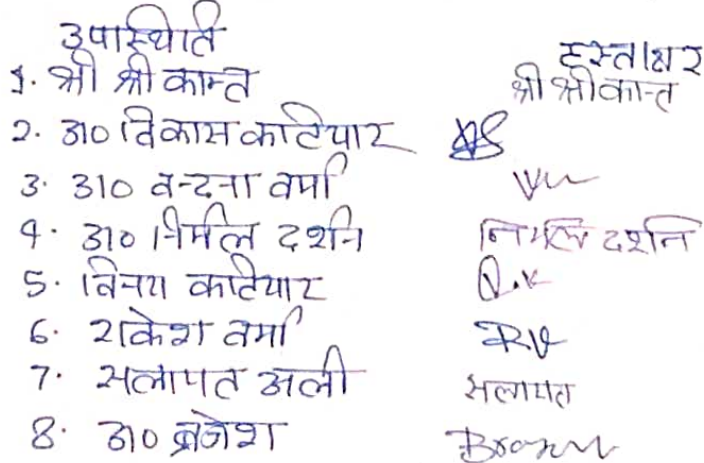 उपस्थिति हस्ताक्षर
1. श्री श्री कान्त श्री श्रीकान्त
2. डा० विकास कटियार
3. डा० वन्दना वर्मा
4. डा० निर्मल दर्शन निर्मल दर्शन
5. विनय कटियार
6. राकेश वर्मा RV
7. सलामत अली सलामत
8. डा० ब्रजेश